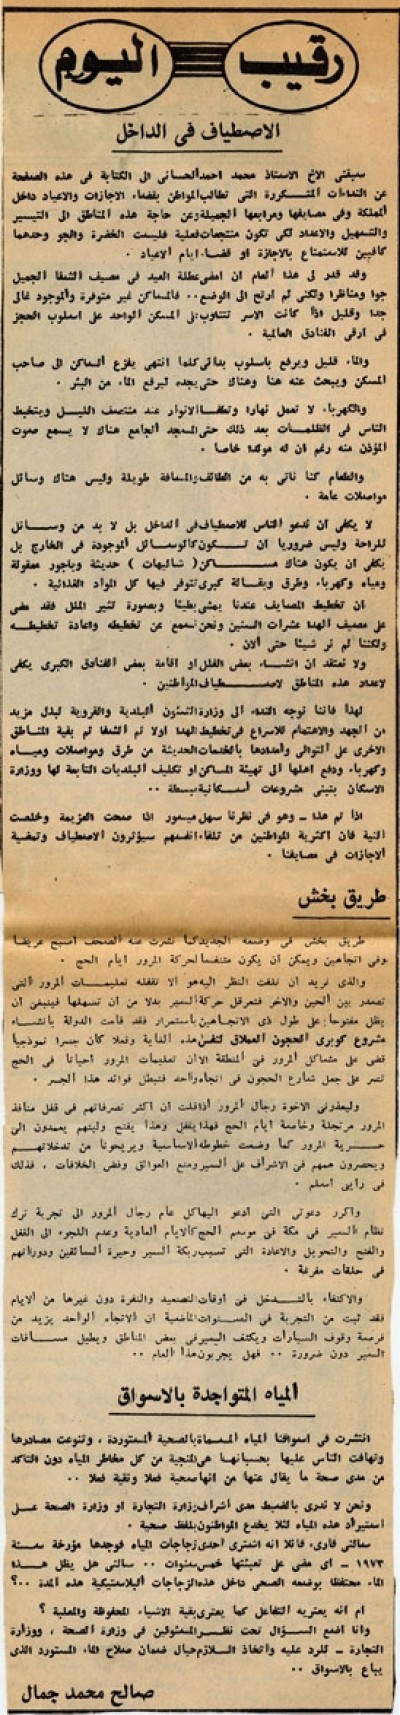 رقيب اليوم
الاصطياف فى الداخل
سبقنى الاخ الاستاذ محمد احمد الحسانى الى الكتابة فى هذه الصفحة
عن النداءات المتكررة التى تطالب المواطن بقضاء الاجازات والاعياد داخل
المملكة وفى مصايفها ومرابعها الجميلة وعن حاجة هذه المناطق الى التيسير
والتسهيل والاعداد لكى تكون منتجعات فعلية فليست الخضرة والجو وحدهما
كافيين للاستمتاع بالاجازة او قضاء ايام الاعياد .
وقد قدر لى هذا العام ان امضى عطلة العيد فى مصيف الشفا الجميل
جوا ومناظرا ولكنى لم ارتح الى الوضع .. فالمساكن غير متوفرة والموجود غالى
جدا وقليل اذا كانت الاسر تتناوب على المسكن الواحد على اسلوب الحجز
فى ارقى الفنادق العالمية .
والماء قليل ويرفع باسلوب بدائى كلما انتهى يفزع الساكن الى صاحب
المسكن ويبحث عنه هنا وهناك حتى يجده ليرفع الماء من البئر .
والكهرباء لا تعمل نهارا وتطفا الانوار عند منتصف الليل ويتخبط
الناس فى الظلمات بعد ذلك حتى المسجد الجامع هناك لا يسمع صوت
المؤذن منه رغم ان له مولدا خاصا .
والطعام كنا ناتى به من الطائف والمسافة طويلة وليس هناك وسائل
مواصلات عامة .
لا يكفى ان ندعو الناس للاصطياف فى الداخل بل لا بد من وسائل
للراحة وليس ضروريا ان تكون كالوسائل الموجودة فى الخارج بل
يكفى ان يكون هناك مساكن ( شاليهات ) حديثة وباجور معقولة
ومياه وكهرباء وطرق وبقالة كبرى تتوفر فيها كل المواد الغذائية .
ان تخطيط المصايف عندنا يمشى بطيئا وبصورة تثير الملل فقد مضى
على مصيف الهدا عشرات السنين ونحن نسمع عن تخطيطه واعادة تخطيطه
ولكننا لم نر شيئا حتى الان .
ولا نعتقد ان انشاء بعض الفلل او اقامة بعض الفنادق الكبرى يكفى
لاعداد هذه المناطق لاصطياف المواطنين .
لهذا فاننا نوجه النداء الى وزارة الشئون البلدية والقروية لبذل مزيد
من الجهد والاهتمام للاسراع فى تخطيط الهدا اولا ثم الشفا ثم بقية المناطق
الاخرى على التوالى وامدادها بالخدمات الحديثة من طرق ومواصلات ومياه
وكهرباء ودفع اهلها الى تهيئة المساكن او تكليف البلديات التابعة لها ووزارة
الاسكان بتبنى مشروعات اسكانية مبسطة ..
اذا تم هذا ـ وهو فى نظرنا سهل ميسور اذا صحت العزيمة وخلصت
النية فان اكثرية المواطنين من تلقاء انفسهم سيؤثرون الاصطياف وتمضية
الاجازات فى مصايفنا .
طريق بخش
طريق بخش فى وضعه الجديد كما نشرت عنه الصحف اصبح عريضا
وفى اتجاهين ويمكن ان يكون متنفسا لحركة المرور ايام الحج .
والذى نريد ان نلفت النظر اليه هو الا تقفله تعليمات المرور التى
تصدر بين الحين والاخر فتعرقل حركة السير بدلا من ان تسهلها فينبغى ان
يظل مفتوحا على طول ذى الاتجاهين باستمرار فقد قامت الدولة بانشاء
مشروع كوبرى الحجون العملاق لنفس هذه الغاية وفعلا كان جسرا نموذجيا
قضى على مشاكل المرور فى المنطقة الا ان تعليمات المرور احيانا فى الحج
تصر على جعل شارع الحجون فى اتجاه واحد فتبطل فوائد هذا الجسر .
وليعذرنى الاخوة رجال المرور اذا قلت ان اكثر تصرفاتهم فى قفل منافذ
المرور مرتجلة وخاصة ايام الحج فهذا يقفل وهذا يفتح وليتهم يعمدون الى
حرية المرور كما وضعت خطوطه الاساسية ويريحونا من تدخلاتهم
ويحصرون همهم فى الاشراف على السير ومنع العوائق وفض الخلافات ، فذلك
فى رايى اسلم .
واكرر دعوتى التى ادعو اليها كل عام رجال المرور الى تجربة ترك
نظام السير فى مكة فى موسم الحج كالايام العادية وعدم اللجوء الى القفل
والفتح والتحويل والاعادة التى تسبب ربكة السير وحيرة السائقين ودورانهم
فى حلقات مفرغة .
والاكتفاء بالتدخل فى اوقات التصعيد والنفرة دون غيرها من الايام
فقد ثبت من التجربة فى السنوات الماضية ان الاتجاه الواحد يزيد من
فرصة وقوف السيارات ويكثف السير فى بعض المناطق ويطيل مسافات
السير دون ضرورة .. فهل يجربون هذا العام ..
المياه المتواجدة بالاسواق
انتشرت فى اسواقنا المياه المسماة بالصحية المستوردة ، وتنوعت مصادرها
وتهافت الناس عليها بحسبانها هى المنجية من كل مخاطر المياه دون التاكد
من مدى صحة ما يقال عنها من انها صحية فعلا ونقية فعلا ..
ونحن لا ندرى بالضبط مدى اشراف وزارة التجارة او وزارة الصحة على
استيراد هذه المياه لئلا يخدع المواطنون بلفظ صحية .
سالنى قارىء قائلا انه اشترى احدى زجاجات المياه فوجدها مؤرخة سنة
١٩٧٣ ـ اى مضى على تعبئتها خمس سنوات .. سالنى هل يظل هذا
الماء محتفظا بوضعه الصحى داخل هذه الزجاجات البلاستيكية هذه المدة ..؟
ام انه يعتريه التفاعل كما يعترى بقية الاشياء المحفوظة والمعلبة ؟
وانا اضع السؤال تحت نظر المسئولين فى وزارة الصحة ، ووزارة
التجارة ـ للرد عليه واتخاذ اللازم حيال ضمان صلاح الماء المستورد الذى
يباع بالاسواق ..
صالح محمد جمال